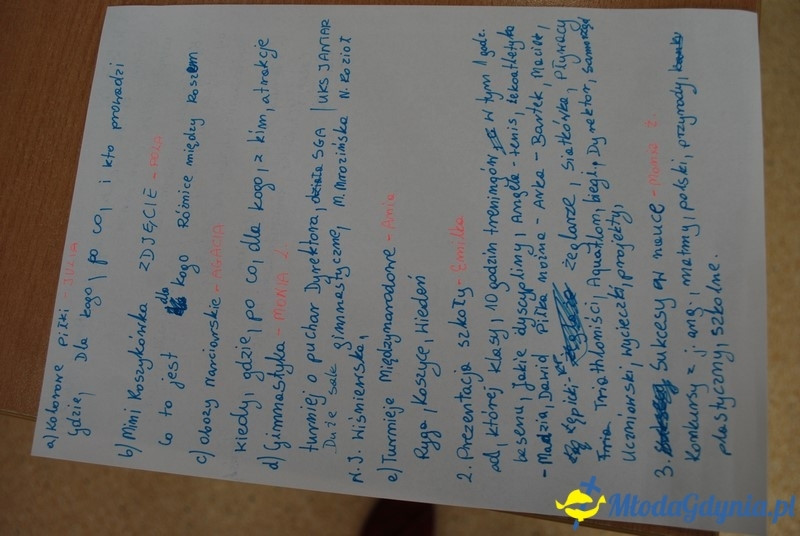 a) Kolorowe Piłki - JULIA
gdzie, Dla kogo, po co, i kto prowadzi
b) Mini Koszykówka ZDJĘCIE - ROZA
Co to jest dla kogo Różnice między koszem
c) Obozy narciarskie - AGATA
kiedy, gdzie, po co, dla kogo, z kim, atrakcje
d) Gimnastyka - MONIA Z.
turniej o puchar Dyrektora, SGA | UKS JANTAR
Duże sale gimnastyczne, M. Mrozińska N. Kozioł
N. J. Wiśniewska,
e) Turnieje Międzynarodowe - Ania
Ryga, Koszyce, Wiedeń
2. Prezentacja szkoły - Emilka
od, której klasy, 10 godzin treningów w tym 1 godz.
basenu, Jakie dyscypliny, Angela - tenis, lekoatletyka
- Madzia, Dawid Piłka nożna - Anka - Bartek, Maciek,
Kępiel - Żeglarze, Siatkówka, Pływacy
Triathloniści, Aquatlon, biegi, Dyrektor, Samorząd
Uczniowski, wycieczki, projekty,
3. Sukcesy w nauce - Monia Z.
Konkursy z j ang, matmy, polski, przyrody,
plastyczny, szkolne.
MłodaGdynia.pl